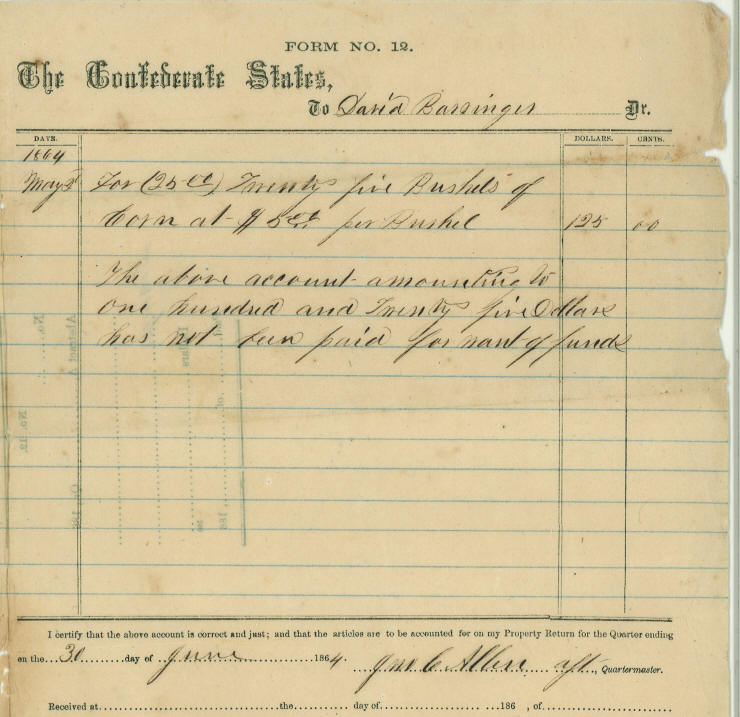 FORM NO. 12.
The Confederate States,
To David Barringer Dr.
DATE. DOLLARS. CENTS.
1864
May 2d For (25 00) Twenty five Bushels of
Corn at $ 5 00 per Bushel 125 00
The above account amounting to
One hundred and Twenty five Dollars
has not been paid for want of funds
I certify that the above account is correct and just; and that the articles are to be accounted for on my Property Return for the Quarter ending
on the 30 day of June 1864. Jno C Allen , Quartermaster.
Received at the day of 186 , of